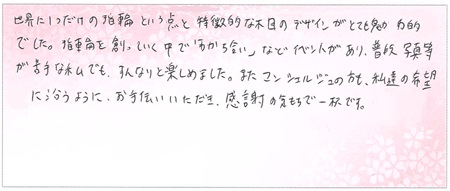 世界に1つだけの指輪という点と特徴的な木目のデザインがとても魅力的
でした。指輪を創っていく中で「わかち合い」などイベントがあり、普段、写真等
が苦手な私でも、すんなりと楽しめました。また コンシェルジュの方も、私達の希望
に沿うように、お手伝いいただき、感謝の気もちで一杯です。